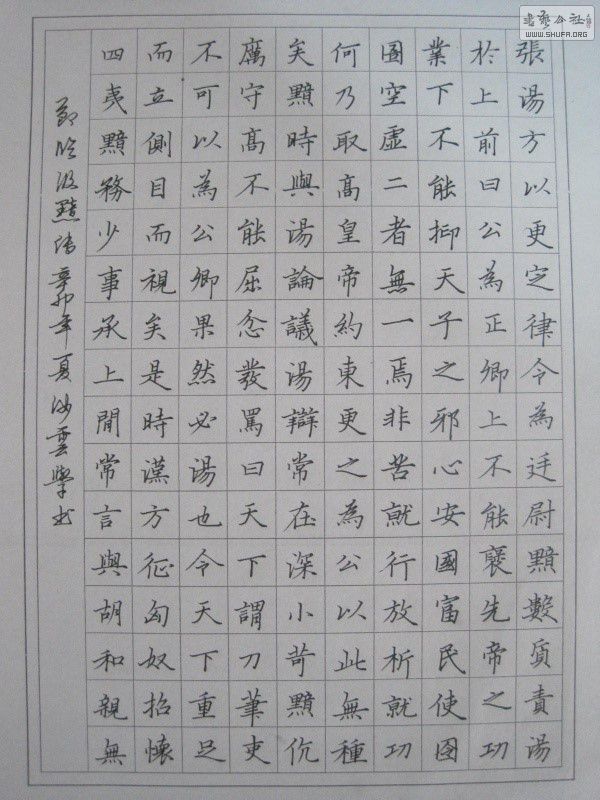 書藝公社
WWW.SHUFA.ORG
張湯方以更定律令為廷尉黯數質責湯
於上前曰公為正卿上不能襃先帝之功
業下不能抑天子之邪心安國富民使囹
圄空虛二者無一焉非苦就行放析就功
何乃取高皇帝約束更之為公以此無種
矣黯時與湯論議湯辯常在深小苛黯伉
厲守高不能屈忿發罵曰天下謂刀筆吏
不可以為公卿果然必湯也令天下重足
而立側目而視矣是時漢方征匈奴招懷
四夷黯務少事承上閒常言與胡和親無
節臨汲黯傳辛卯年夏雲學書